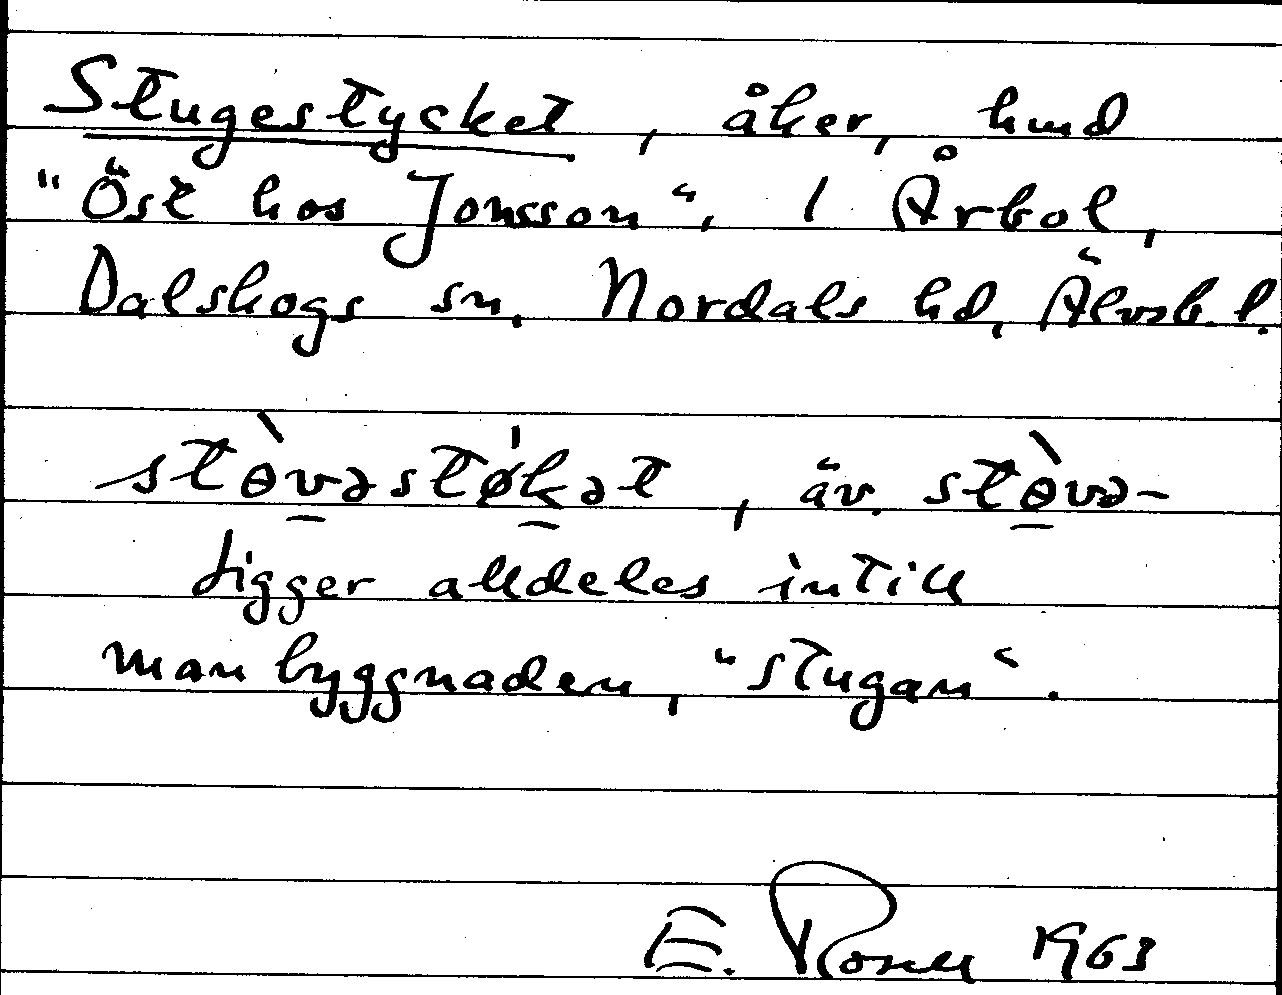 Stugestycket, åker, hmd
"Öst hos Jonsson", 1 Årbol,
Dalskogs sn, Nordals hd, Älvsb. l.
stòvəstø̍kət, äv. stòvə-
Ligger alldeles intill
manbyggnaden, "stugan".
E. Rosell 1963